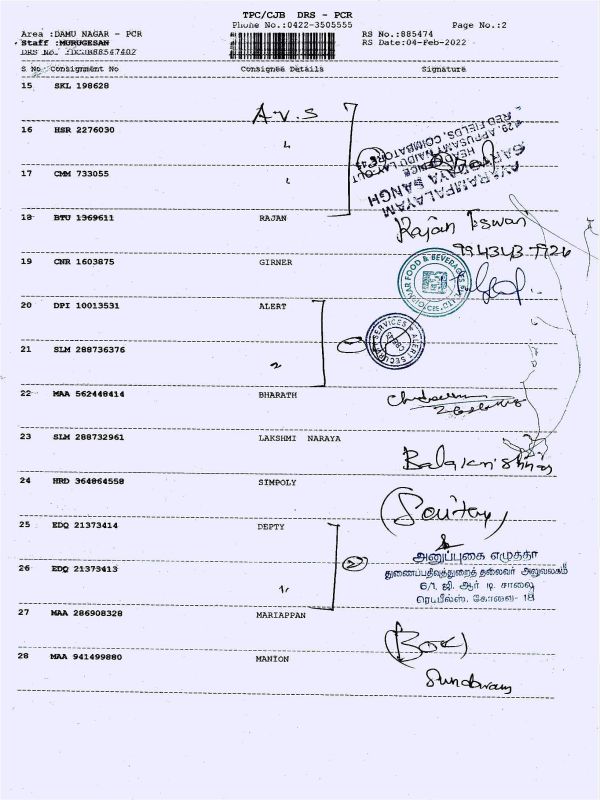 TPC/CJB DRS - PCR
Phone No.:0422-3505555 Page No.:2
Area :DAMU NAGAR - PCR RS No.:885474
Staff :MURUGESAN RS Date:04-Feb-2022
DRS No. :TDCJB88547402
S No Consignment No Consignee Details Signature
15 SKL 198628
A.V.S
16 HSR 2276030
17 CMM 733055
18 BTU 1369611 RAJAN
Rajan Eswari
19 CNR 1603875 GIRNER
20 DPI 10013531 ALERT
21 SLM 288736376
22 MAA 562448414 BHARATH
23 SLM 288732961 LAKSHMI NARAYA
24 HRD 364864558 SIMPOLY
25 EDQ 21373414 DEPTY
அனுப்புகை எழுத்தர்
துணைப்பதிவுத்துறைத் தலைவர் அலுவலகம்
26 EDQ 21373413
6/1, ஜி. ஆர் டி. சாலை
ரெட்பீல்ஸ், கோவை- 18
27 MAA 286908328 MARIAPPAN
28 MAA 941499880 MANION
Sundaram